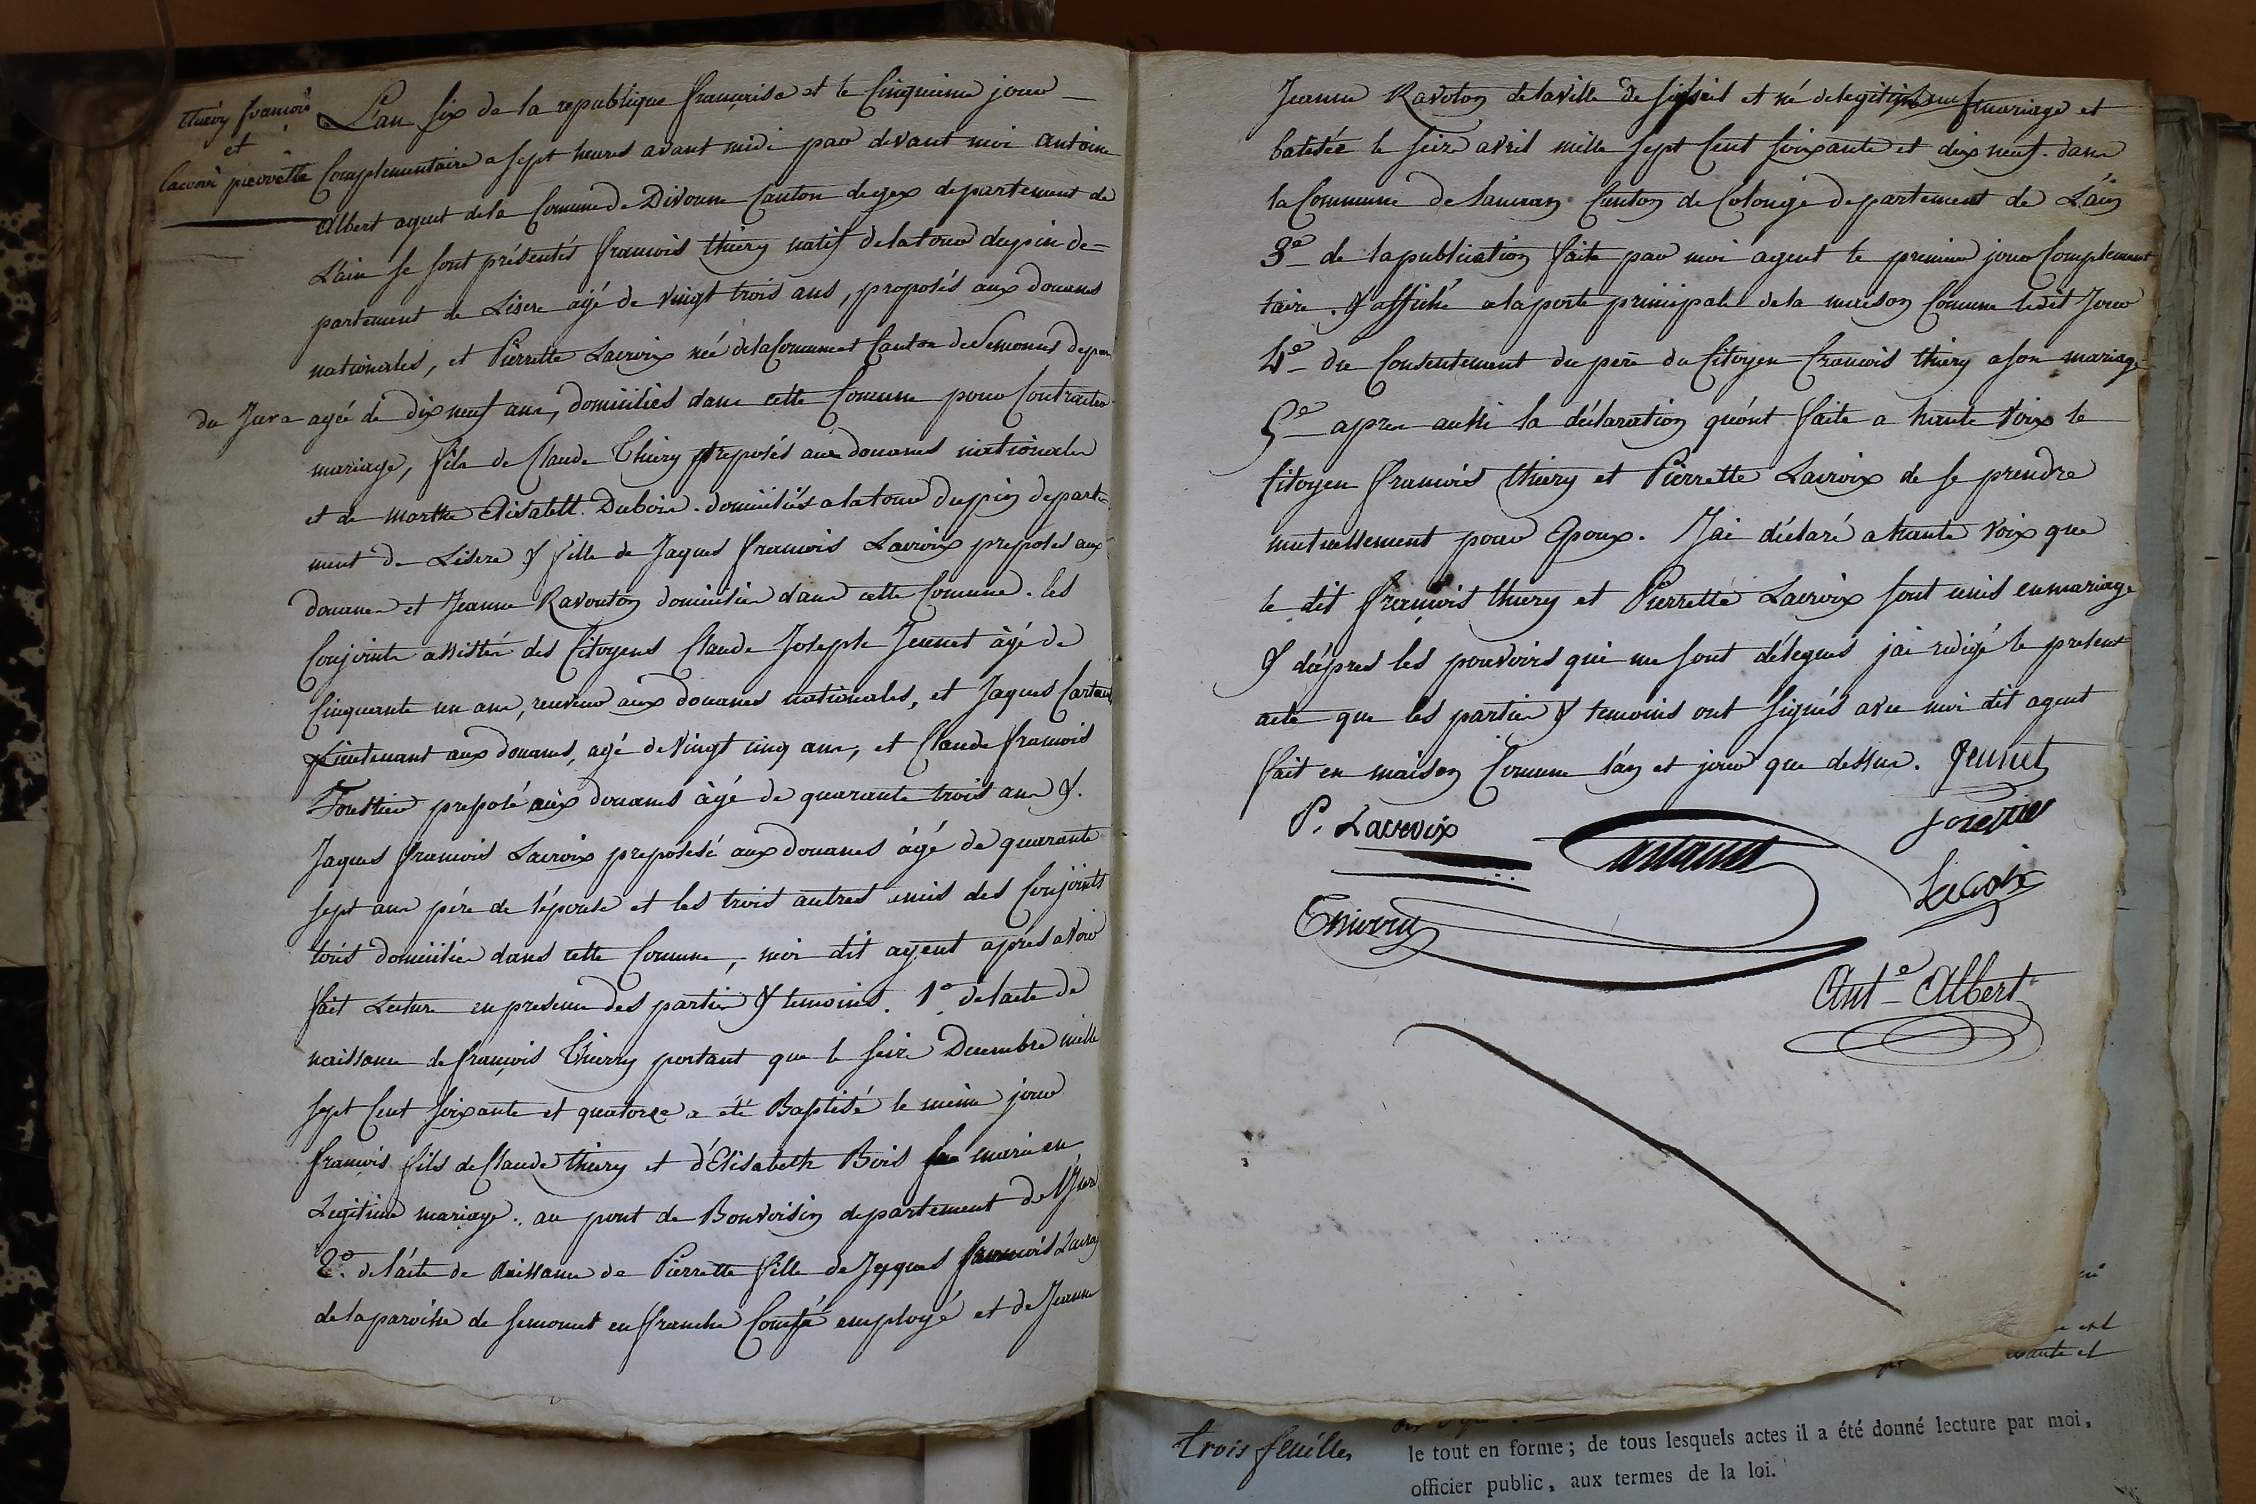 thiery francois
et
lacroix pierrette
L'an six de la republique française et le Cinquieme jour
Complementaire a sept heures avant midi par devant moi antoine
Albert agent de la Comune de Divonne Canton de gex departement de
L'ain se sont présentés francois thiery natif de la tour dupin de=
partement de Lisere agé de vingt trois ans, proposés aux douanes
nationales, et Pierrette Lacroix neé de la Comune et Canton de Semonset depar
du Jura agée de dix neuf ans, domiciliés dans cette Comune pour Contracter
mariage, fils de Claude Thiery preposés aux douanes nationales
et de marthe Elisabett Dubois domiciliés a la tour dupin departe=
ment de Lisere & fille de Jaques francois Lacroix preposés aux
douanes et Jeanne Ravouton domiciliés dans cette Comune. les
Conjoints assistés des Citoyens Claude Joseph Jeunet âgé de
Cinquante un ans, receveur aux douanes nationales, et Jaques Cartaux
Lieutenant aux douanes, agé de vingt cinq ans, et Claude francois
Forestier preposé aux douanes âgé de quarante trois ans &.
Jaques francois Lacroix preposé aux douanes âgé de quarante
sept ans pére de l'épouse et les trois autres amis des Conjoints
tous domiciliés dans cette Comune, moi dit agent aprés avoir
fait Lecture en presence des parties & temoins. 1º de l'acte de
naissance de françois Thierry portant que le seize Decembre mille
sept Cent soixante et quatorze a été Baptisé le même jour
francois fils de Claude thiery et d'Elisabeth Bois marié en
Legitime mariage. au pont de Bonvoisin departement de l'Isere
2º. de l'acte de Naissance de Pierrette fille de Jaques francois Lacroix
de la paroisse de semonset en franche Comté employé et de Jeanne
Jeanne Ravoton de la ville de et né de legitime mariage et
batisée le seize avril mille sept Cent soixante et dix neuf. dans
la Commune de Canton de Colonge departement de L'ain
3º de la publication faite par moi agent le premier jour Complement
taire. & affiché a la porte principale de la maison Comune le dit Jour
4º du Consentement du pere du Citoyen francois thiery a son mariage
5º apres aussi la déclaration qu'ont faite a haute voix le
Citoyen francois thiery et Pierrette Lacroix de se prendre
mutuellement pour Epoux. J'ai déclaré a haute voix que
le dit françois thiery et Pierrette Lacroix sont unis en mariage
& d'apres les pouvoirs qui me sont délegués j'ai redigé le present
acte que les parties & temoins ont signés avec moi dit agent
fait en maison Comune l'an et jour que dessus. Jeunet
P. Lacroix
Cartaux
forestier
Lacroix
Thierry
Antº Albert
trois feuilles
le tout en forme; de tous lesquels actes il a été donné lecture par moi,
officier public, aux termes de la loi.